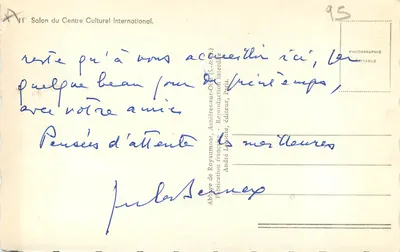 11 Salon du Centre Culturel International.
95
PHOTOGRAPHIE
VÉRITABLE
reste qu'à vous accueillir ici, par
quelque beau jour de printemps,
avec votre amie
Pensées d'attente les meilleures
Abbaye de Royaumont, Asnières-sur-Oise (S.-et-O.)
Publication française - Reproduction interdite
André Leconte, éditeur, Paris